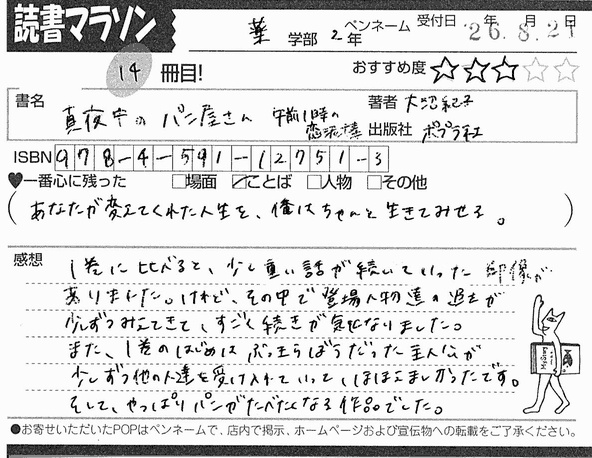 読書マラソン
薬 学部 2年 ペンネーム 受付日 '26.年8.月21日
14 冊目! おすすめ度 ☆☆☆☆☆
書名 真夜中のパン屋さん 午前1時の恋泥棒
著者 大沼紀子
出版社 ポプラ社
ISBN 978-4-591-12751-3
♥一番心に残った □場面 ☑ことば □人物 □その他
(あなたが変えてくれた人生を、俺はちゃんと生きてみせる。)
感想
1巻に比べると、少し重い話が続いていった印像が
ありました。けれど、その中で登場人物達の過去が
少しずつみえてきて、すごく続きが気になりました。
また、1巻のはじめはぶっきらぼうだった主人公が
少しずつ他の人達を受け入れていって、ほほえましかったです。
そして、やっぱりパンがたべたくなる作品でした。
●お寄せいただいたPOPはペンネームで、店内で掲示、ホームページおよび宣伝物への転載をご了承ください。